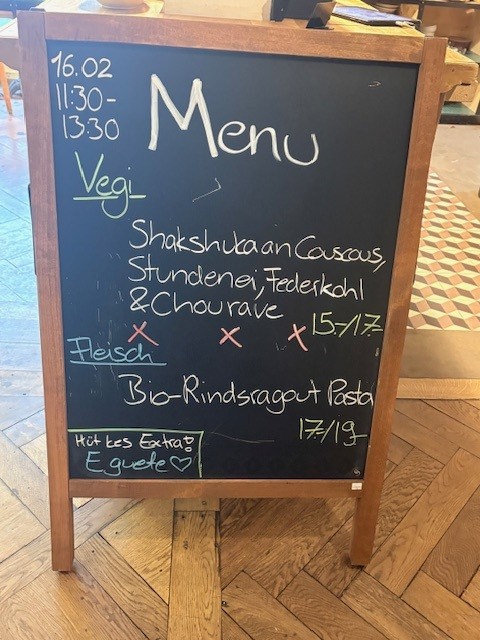 16.02
11:30-
13:30
Menu
Vegi
Shakshuka an Couscous,
Stundenei, Federkohl
& Chourave
15.-/17.-
Fleisch
Bio-Rindsragout Pasta
17.-/19.-
Hüt kes Extra!
E guete♡